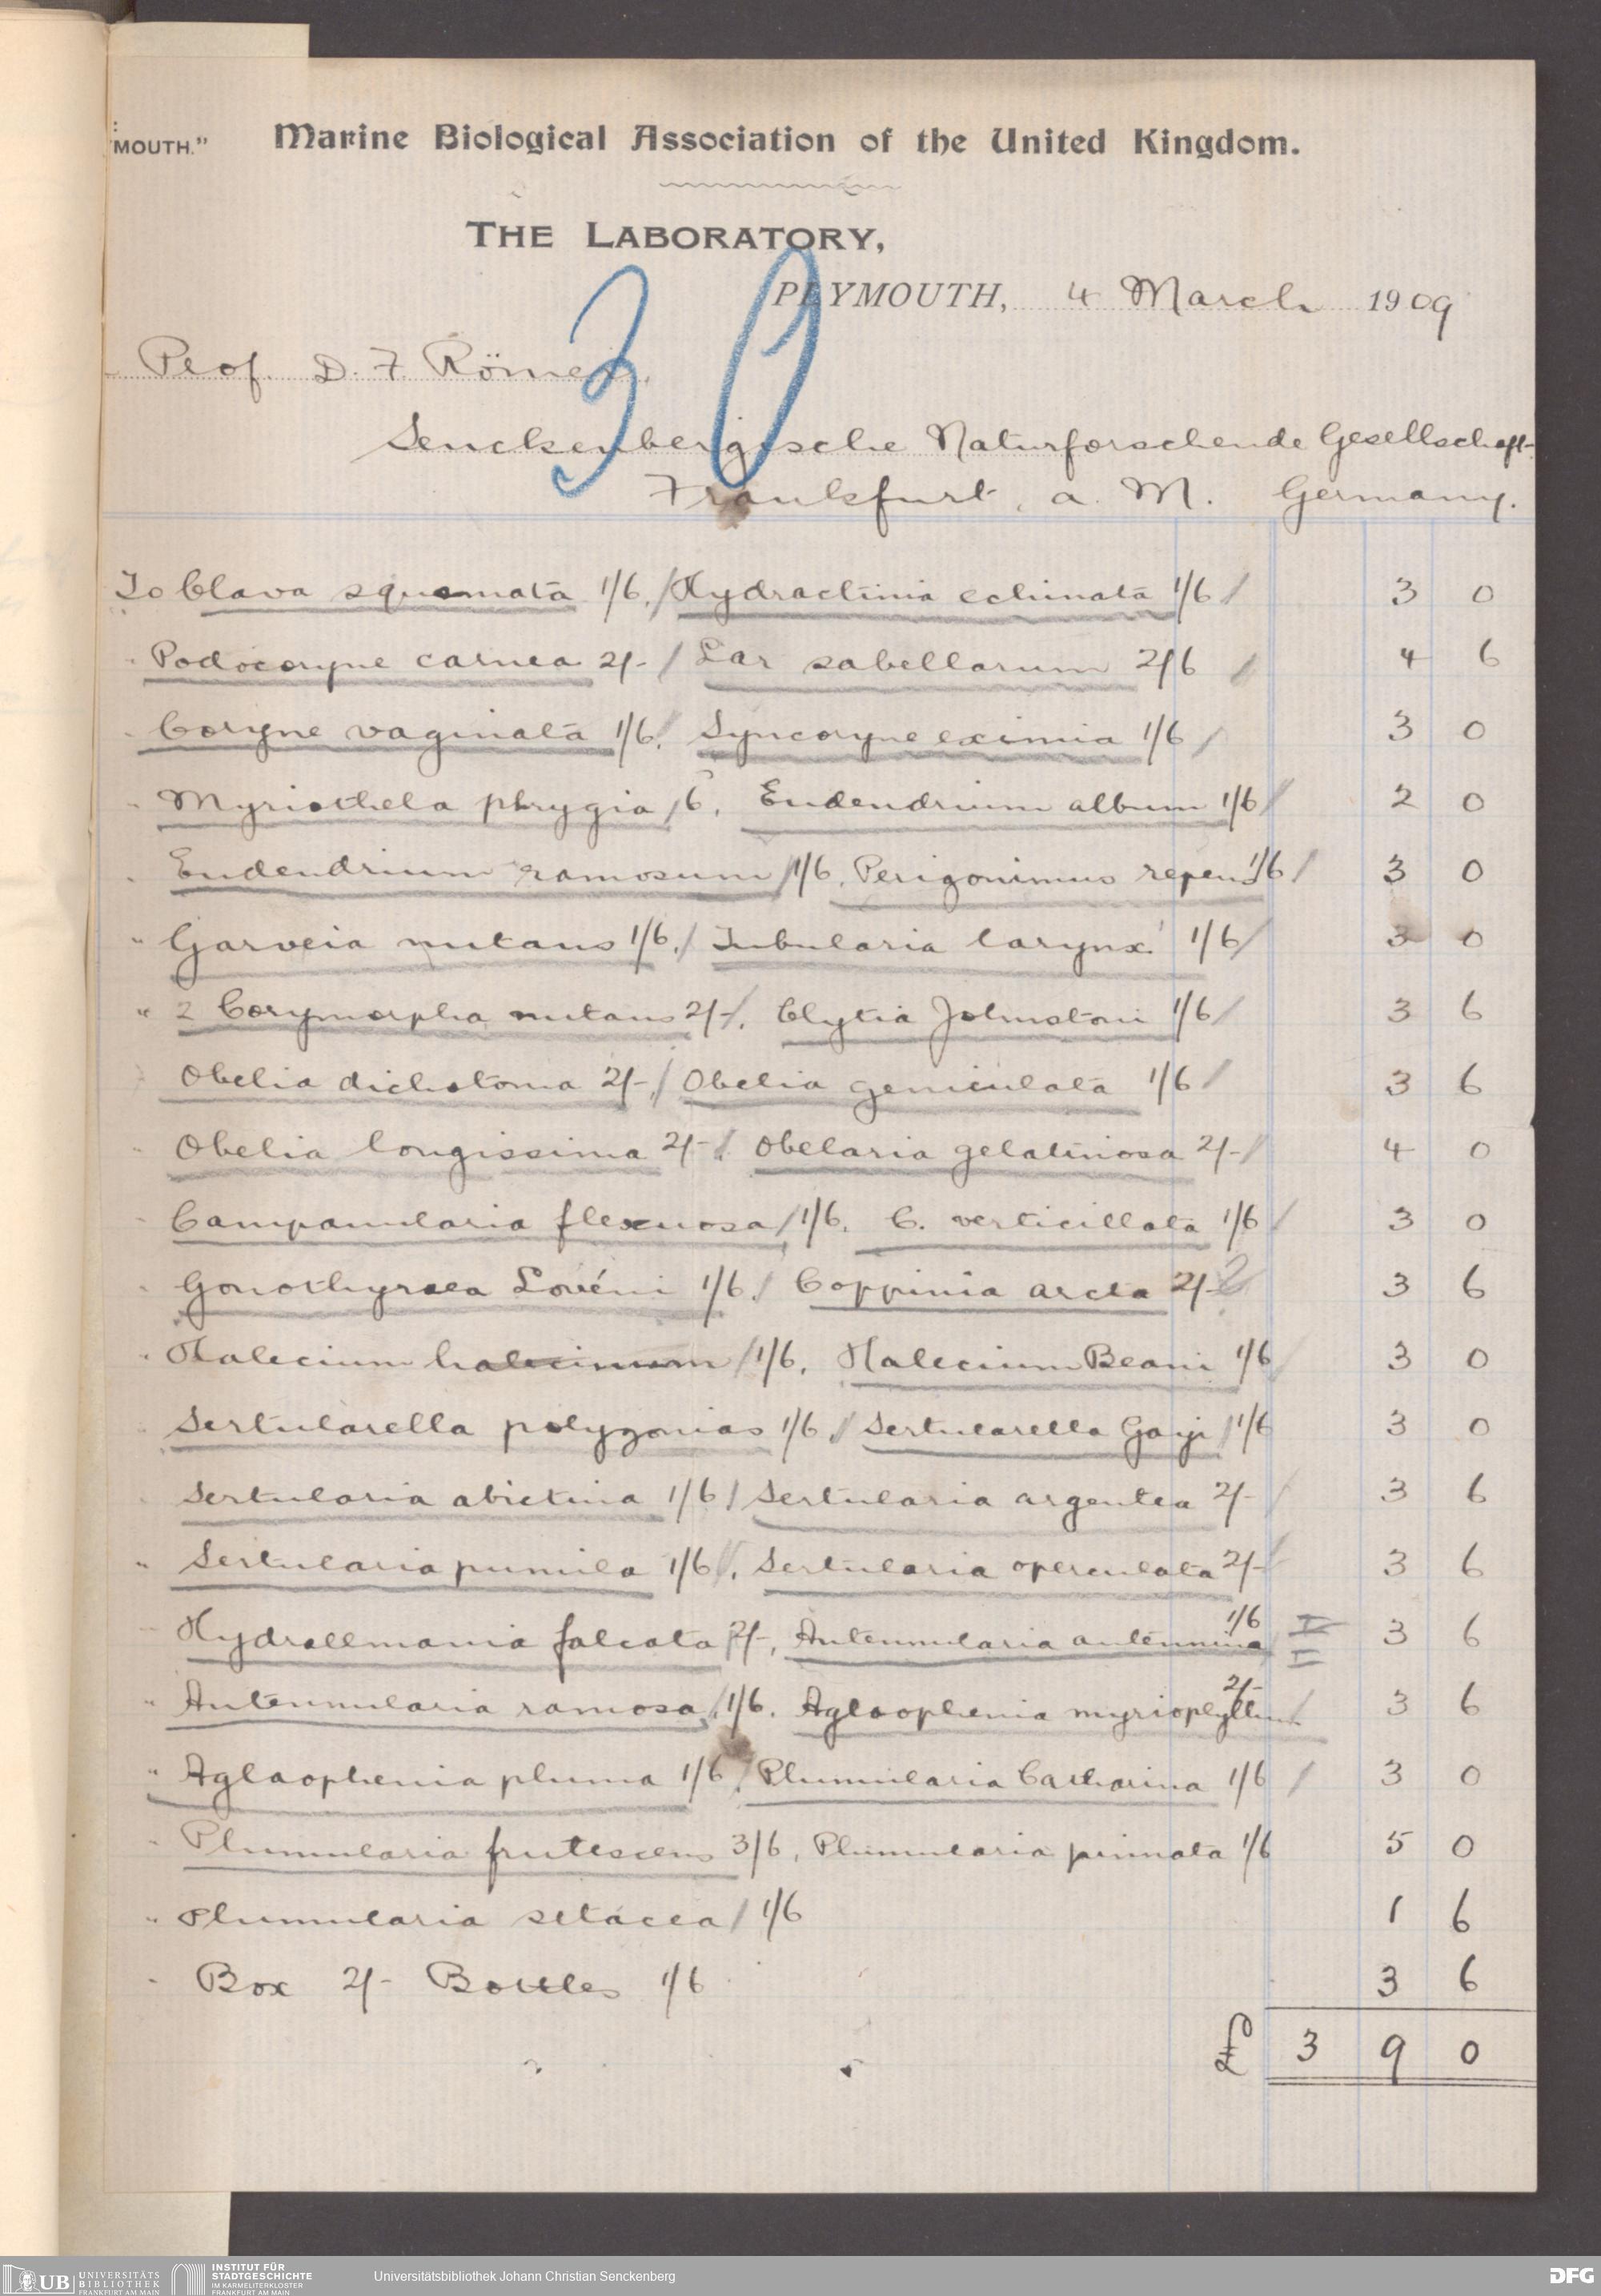 MOUTH."
Marine Biological Association of the United Kingdom.
THE LABORATORY,
PLYMOUTH, 4 March 1909
30
Prof. D. F. Römer,
Senckenbergische Naturforschende Gesellschaft
Frankfurt, a. M. Germany.
To Clava squamata 1/6, / Hydractinia echinata 1/6 / 3 0
" Podocoryne carnea 2/- / Lar sabellarum 2/6 / 4 6
" Coryne vaginata 1/6, / Syncoryne eximia 1/6 / 3 0
" Myriothela phrygia /6, Eudendrium album 1/6 / 2 0
" Eudendrium ramosum / 1/6, Perigonimus repens 1/6 / 3 0
" Garveia nutans 1/6, / Tubularia larynx 1/6 / 3 0
" 2 Corymorpha nutans 2/- /, Clytia Johnstoni 1/6 / 3 6
" Obelia dichotoma 2/-, / Obelia geniculata 1/6 / 3 6
" Obelia longissima 2/- / Obelaria gelatinosa 2/- / 4 0
" Campanularia flexuosa / 1/6, C. verticillata 1/6 / 3 0
" Gonothyraea Lovéni 1/6 / Coppinia arcta 2/- 3 6
" Halecium halecinum / 1/6, Halecium Beani 1/6 / 3 0
" Sertularella polyzonias 1/6 / Sertularella Gayi / 1/6 3 0
" Sertularia abietina 1/6 / Sertularia argentea 2/- / 3 6
" Sertularia pumila 1/6 /, Sertularia operculata 2/- / 3 6
" Hydrallmania falcata / 2/-, Antennularia antennina 1/6 I I 3 6
" Antennularia ramosa / 1/6, Aglaophenia myriophyllum 2/- / 3 6
" Aglaophenia pluma 1/6, / Plumularia Catharina 1/6 / 3 0
" Plumularia frutescens 3/6, Plumularia pinnata 1/6 5 0
" Plumularia setacea / 1/6 1 6
" Box 2/- Bottles 1/6 3 6
£ 3 9 0
UB UNIVERSITÄTS BIBLIOTHEK FRANKFURT AM MAIN
INSTITUT FÜR STADTGESCHICHTE IM KARMELITERKLOSTER FRANKFURT AM MAIN
Universitätsbibliothek Johann Christian Senckenberg
DFG